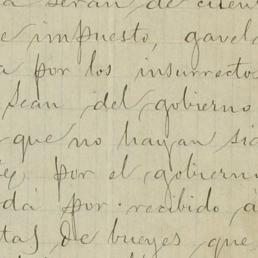 a seran de cuent
e impuesto, gavel
a por los insurrecto
Sean del gobierno
rque no hayan si
por el gobierno
da por recibido a
tas de bueyes que